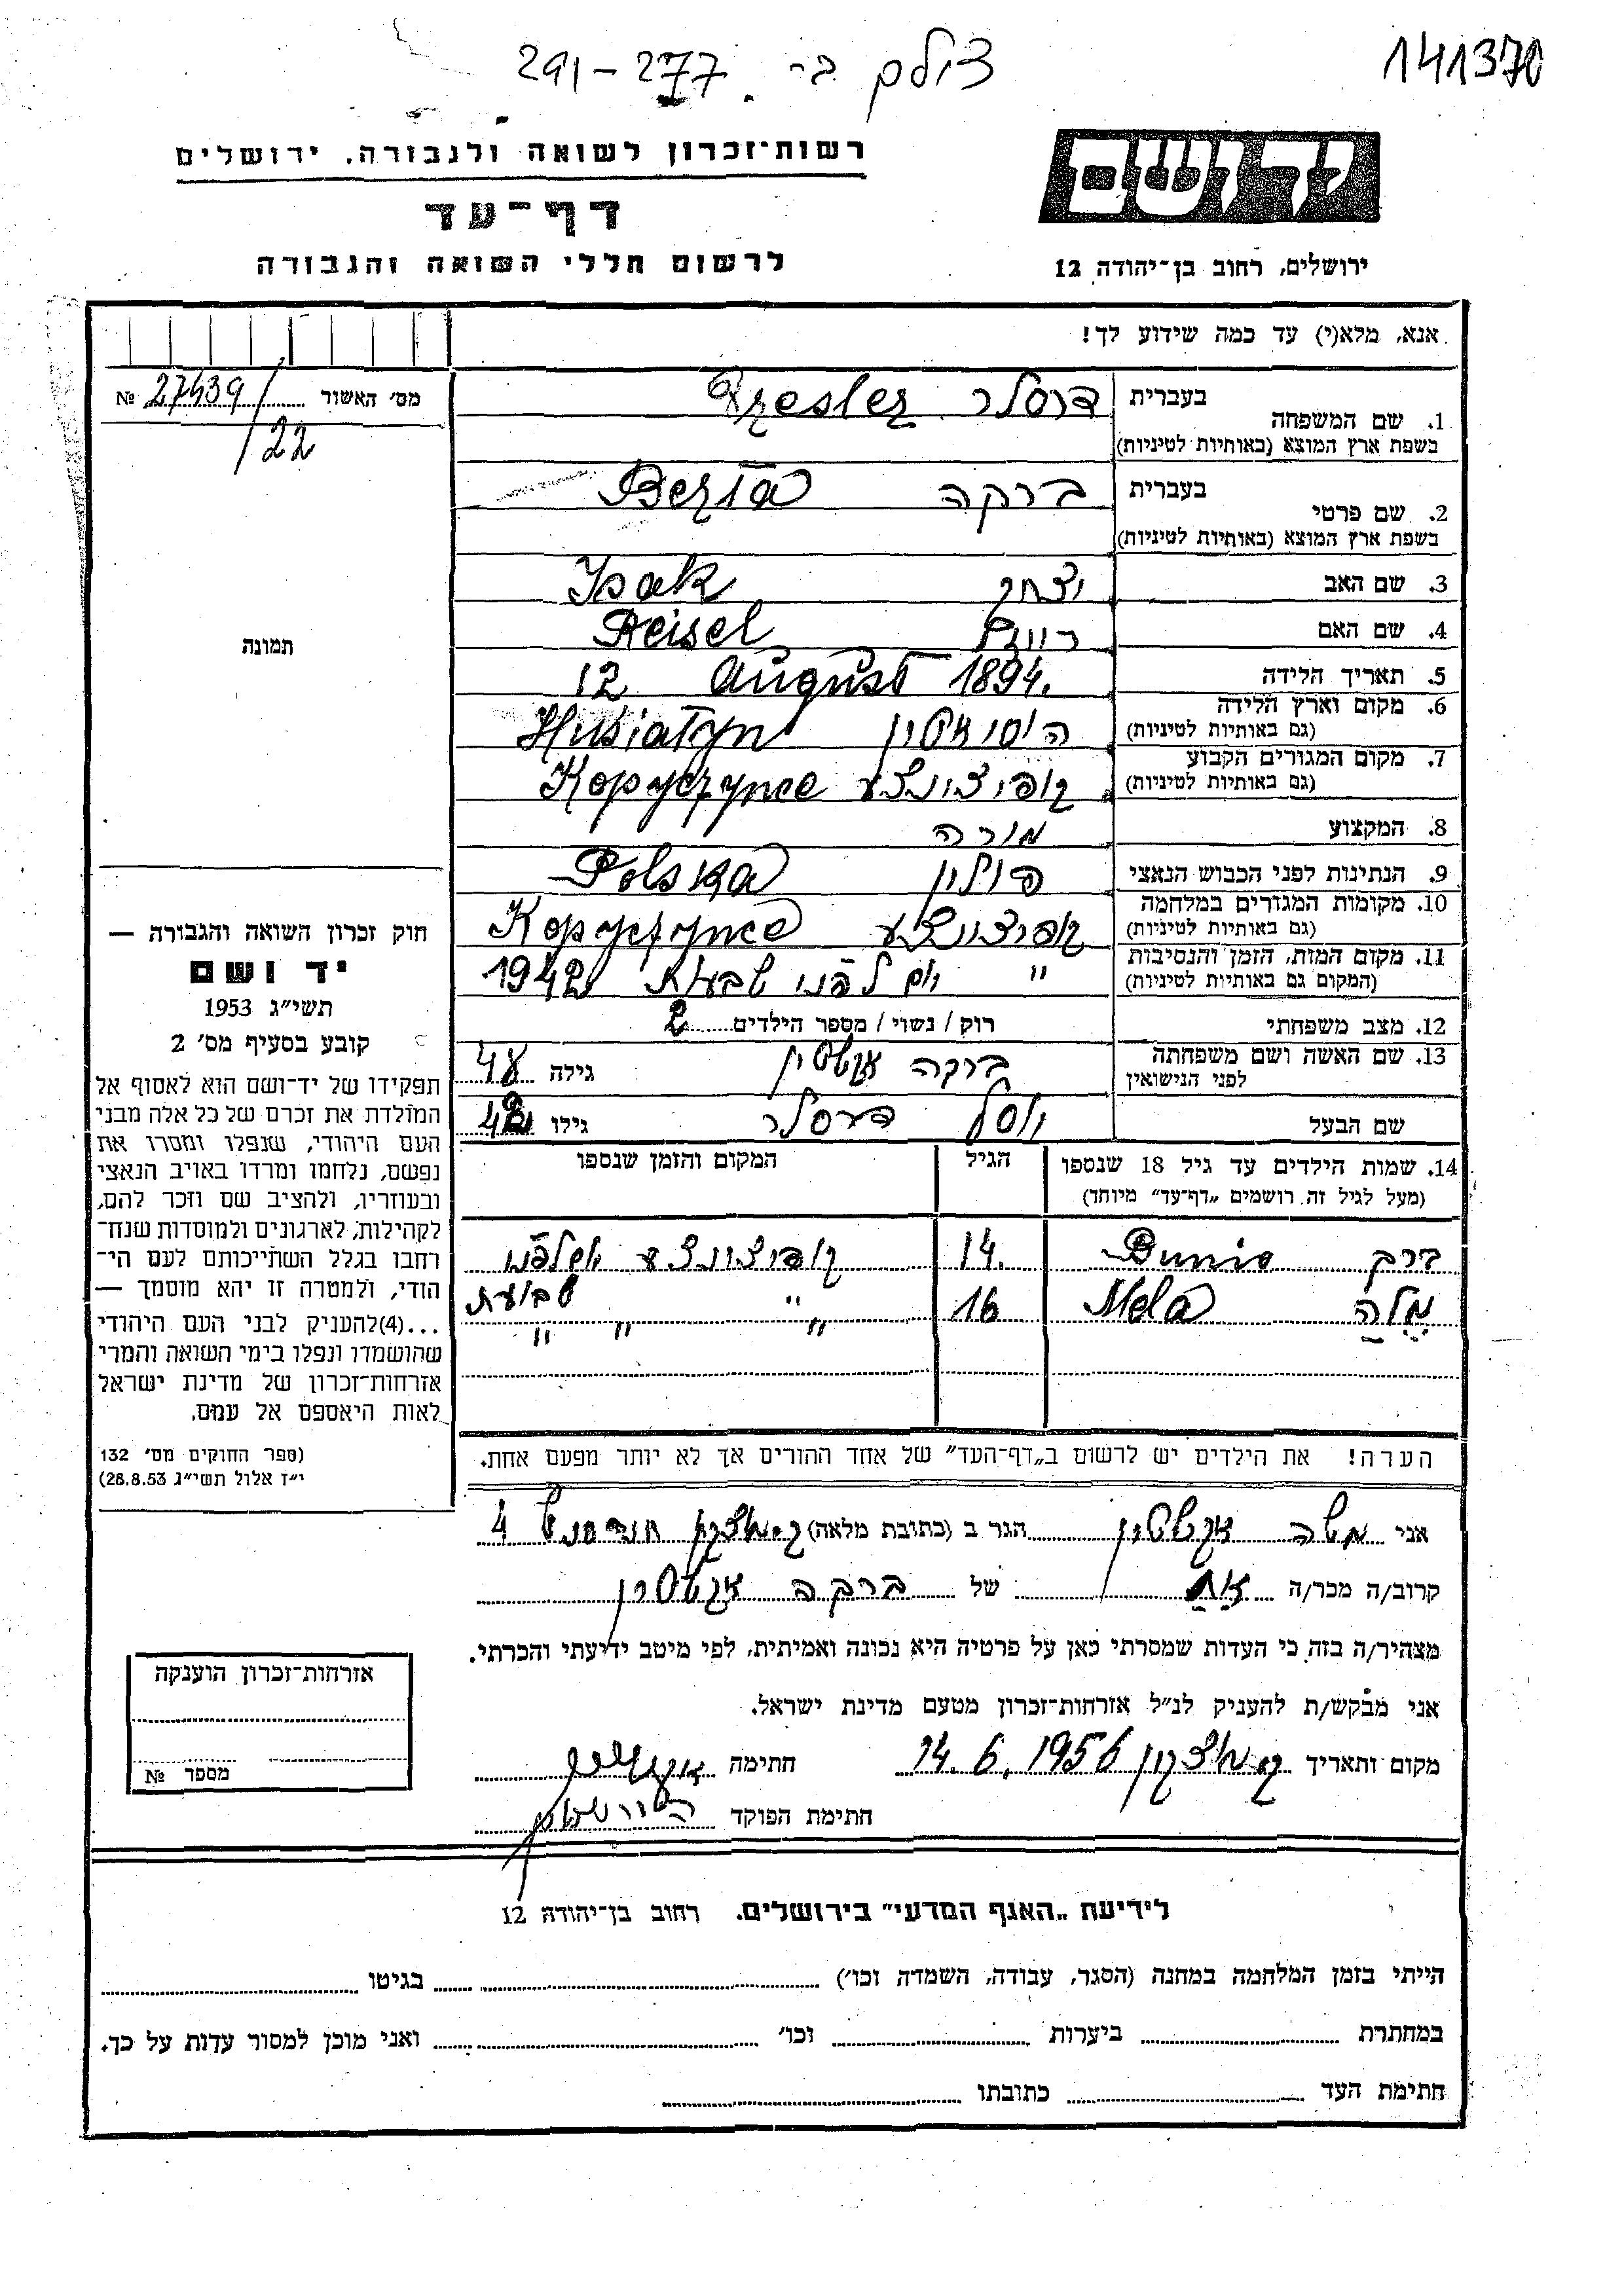 צולם ב- 277-291
141370
יד ושם
רשות־זכרון לשואה ולגבורה, ירושלים
דף־עד
לרשום חללי השואה והגבורה
ירושלים, רחוב בן־יהודה 12
אנא, מלא(י) עד כמה שידוע לך!
מס׳ האשור № 27439/
/22
תמונה
1. שם המשפחה בעברית דרסלר Dresler
בשפת ארץ המוצא (באותיות לטיניות)
2. שם פרטי בעברית ברקה Berta
בשפת ארץ המוצא (באותיות לטיניות)
3. שם האב יצחק Isak
4. שם האם רייזל Reisel
5. תאריך הלידה 12 August 1894.
6. מקום וארץ הלידה הוסיאטין Husiatyn
(גם באותיות לטיניות)
7. מקום המגורים הקבוע קופיצינצע Kopyczynce
(גם באותיות לטיניות)
8. המקצוע מורה
9. הנתינות לפני הכבוש הנאצי פולין Polska
10. מקומות המגורים במלחמה קופיצינצע Kopyczynce
(גם באותיות לטיניות)
11. מקום המות, הזמן והנסיבות " יום לפני שבועת 1942
(המקום גם באותיות לטיניות)
12. מצב משפחתי רוק / נשוי / מספר הילדים 2
13. שם האשה ושם משפחתה ברקה גילה 48
לפני הנישואין
שם הבעל יוסל דרסלר גילו 42
14. שמות הילדים עד גיל 18 שנספו הגיל המקום והזמן שנספו
(מעל לגיל זה רושמים „דף־עד״ מיוחד)
ברק Dunio 14. קופיצינצע לפני
שבועת
מלה Mela 16 " " "
הערה! את הילדים יש לרשום ב„דף־העד״ של אחד ההורים אך לא יותר מפעם אחת.
חוק זכרון השואה והגבורה —
יד ושם
תשי״ג 1953
קובע בסעיף מס׳ 2
תפקידו של יד־ושם הוא לאסוף אל
המולדת את זכרם של כל אלה מבני
העם היהודי, שנפלו ומסרו את
נפשם, נלחמו ומרדו באויב הנאצי
ובעוזריו, ולהציב שם וזכר להם,
לקהילות, לארגונים ולמוסדות שנח־
רבו בגלל השתייכותם לעם הי־
הודי, ולמטרה זו יהא מוסמך —
...(4)להעניק לבני העם היהודי
שהושמדו ונפלו בימי השואה והמרי
אזרחות־זכרון של מדינת ישראל
לאות היאספם אל עמם.
(ספר החוקים מס׳ 132
י״ז אלול תשי״ג 28.8.53)
אני משה הגר ב (כתובת מלאה) ק. מוצקין 4
קרוב/ה מכר/ה אח של ברקה
מצהיר/ה בזה כי העדות שמסרתי כאן על פרטיה היא נכונה ואמיתית, לפי מיטב ידיעתי והכרתי.
אני מבקש/ת להעניק לנ״ל אזרחות־זכרון מטעם מדינת ישראל.
מקום ותאריך ק. מוצקין 14.6.1956 חתימה
חתימת הפוקד
אזרחות־זכרון הוענקה
מספר №
לידיעת „האגף המדעי״ בירושלים. רחוב בן־יהודה 12
הייתי בזמן המלחמה במחנה (הסגר, עבודה, השמדה וכו׳) בגיטו
במחתרת ביערות וכו׳ ואני מוכן למסור עדות על כך.
חתימת העד כתובתו